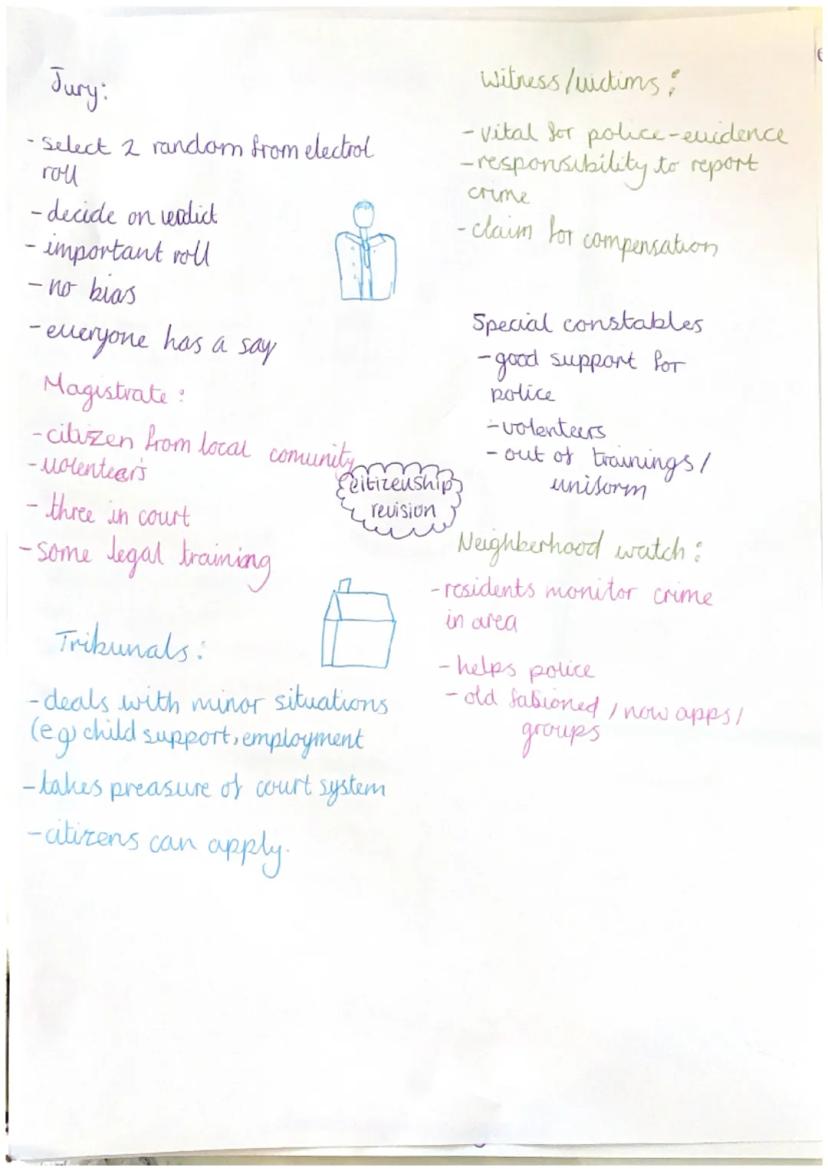 Jury:
- select 2 random from electrol
roll
- decide on verdict
- important roll
- no bias
- everyone has a say
Magistrate:
- citizen from local comunity
- volenteers
- three in court
- some legal training
Tribunals:
- deals with minor situations
(e.g) child support, employment
- takes preasure of court system
- citizens can apply.
citizenship
revision
witness/victims:
- vital for police - evidence
- responsibility to report
crime
- claim for compensation
Special constables
- good support for
police
- volenteers
- out of trainings/
uniform
Neighberhood watch:
- residents monitor crime
in area
- helps police
- old fashioned / now apps/
groups